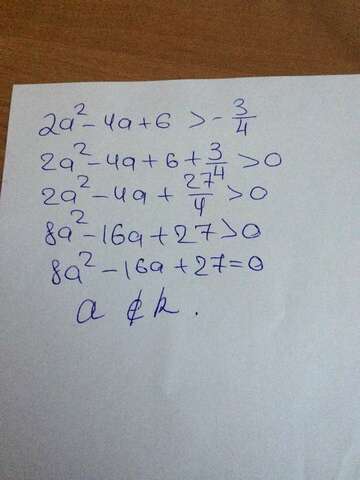 2a² - 4a + 6 > - 3/4
2a² - 4a + 6 + 3/4 > 0
2a² - 4a + 27/4 > 0
8a² - 16a + 27 > 0
8a² - 16a + 27 = 0
a ∉ k.